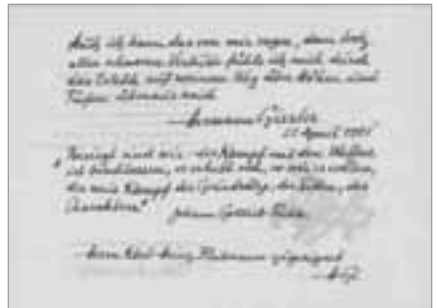 Auch ich kann das von mir sagen, denn trotz
aller schweren Verluste fühle ich mich durch
das Erlebte auf meinem Weg über Höhen und
Tiefen überaus reich
Hermann Giesler
April 1981
"Besiegt sind wir - der Kampf mit den Waffen
ist beschlossen, es erhebt sich, so wir es wollen,
der neue Kampf der Grundsätze, der Sitten, des
Charakters"
Johann Gottlieb Fichte
Herrn Karl-Heinz zugeeignet